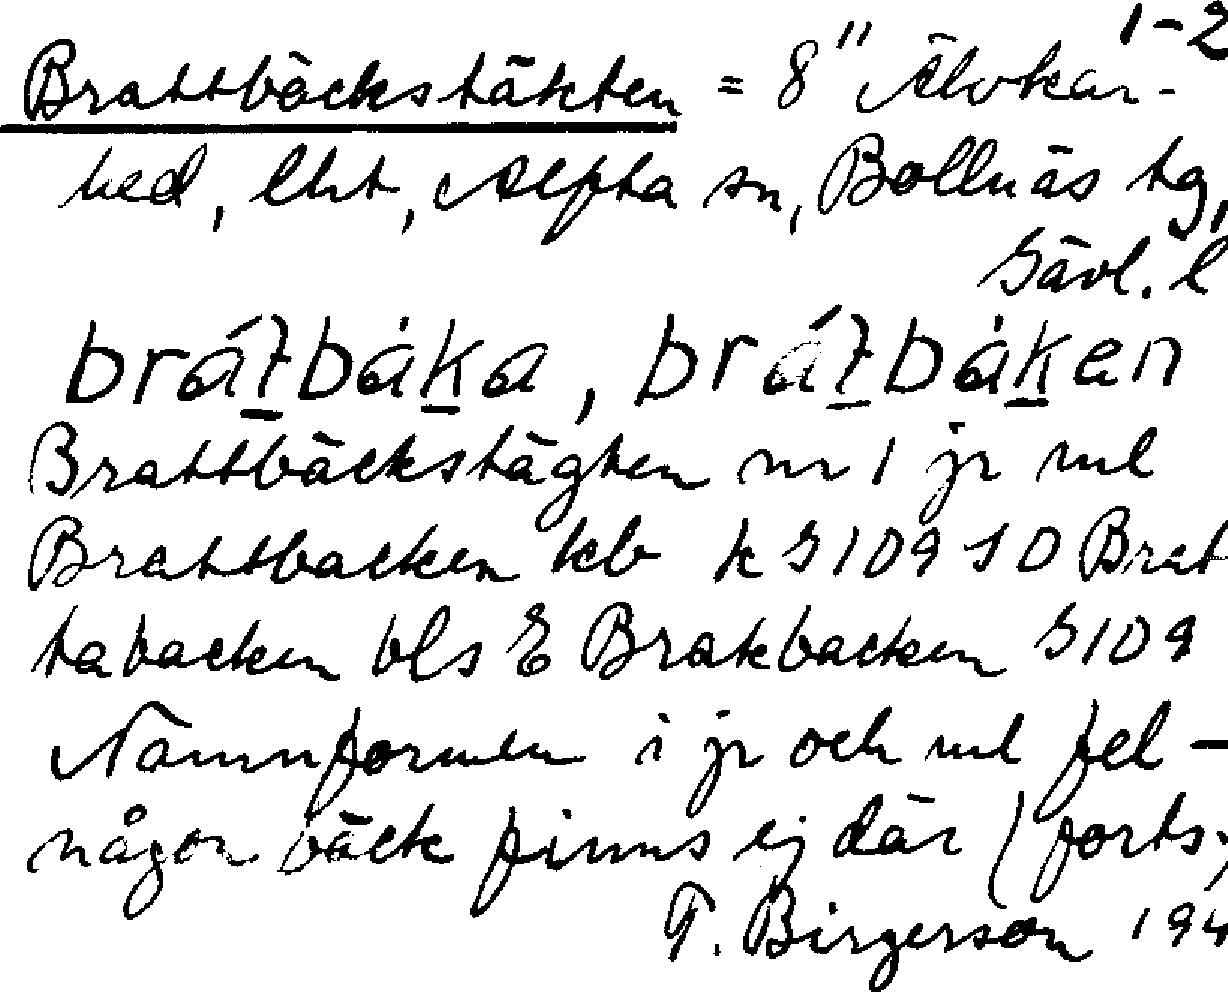 1-2
Brattbäckstäkten = 8" Älvkar-
hed, lht, Alfta sn, Bollnäs tg,
Gävl. l
brátbàka, brátbàken
Brattbäckstägten nr 1 jr ml
Brattbacken kb k G109 SO Brat
tabacken bls E Brakbacken G109
Namnformen i jr och ml fel –
någon bäck finns ej där (forts;
T. Birgerson 194